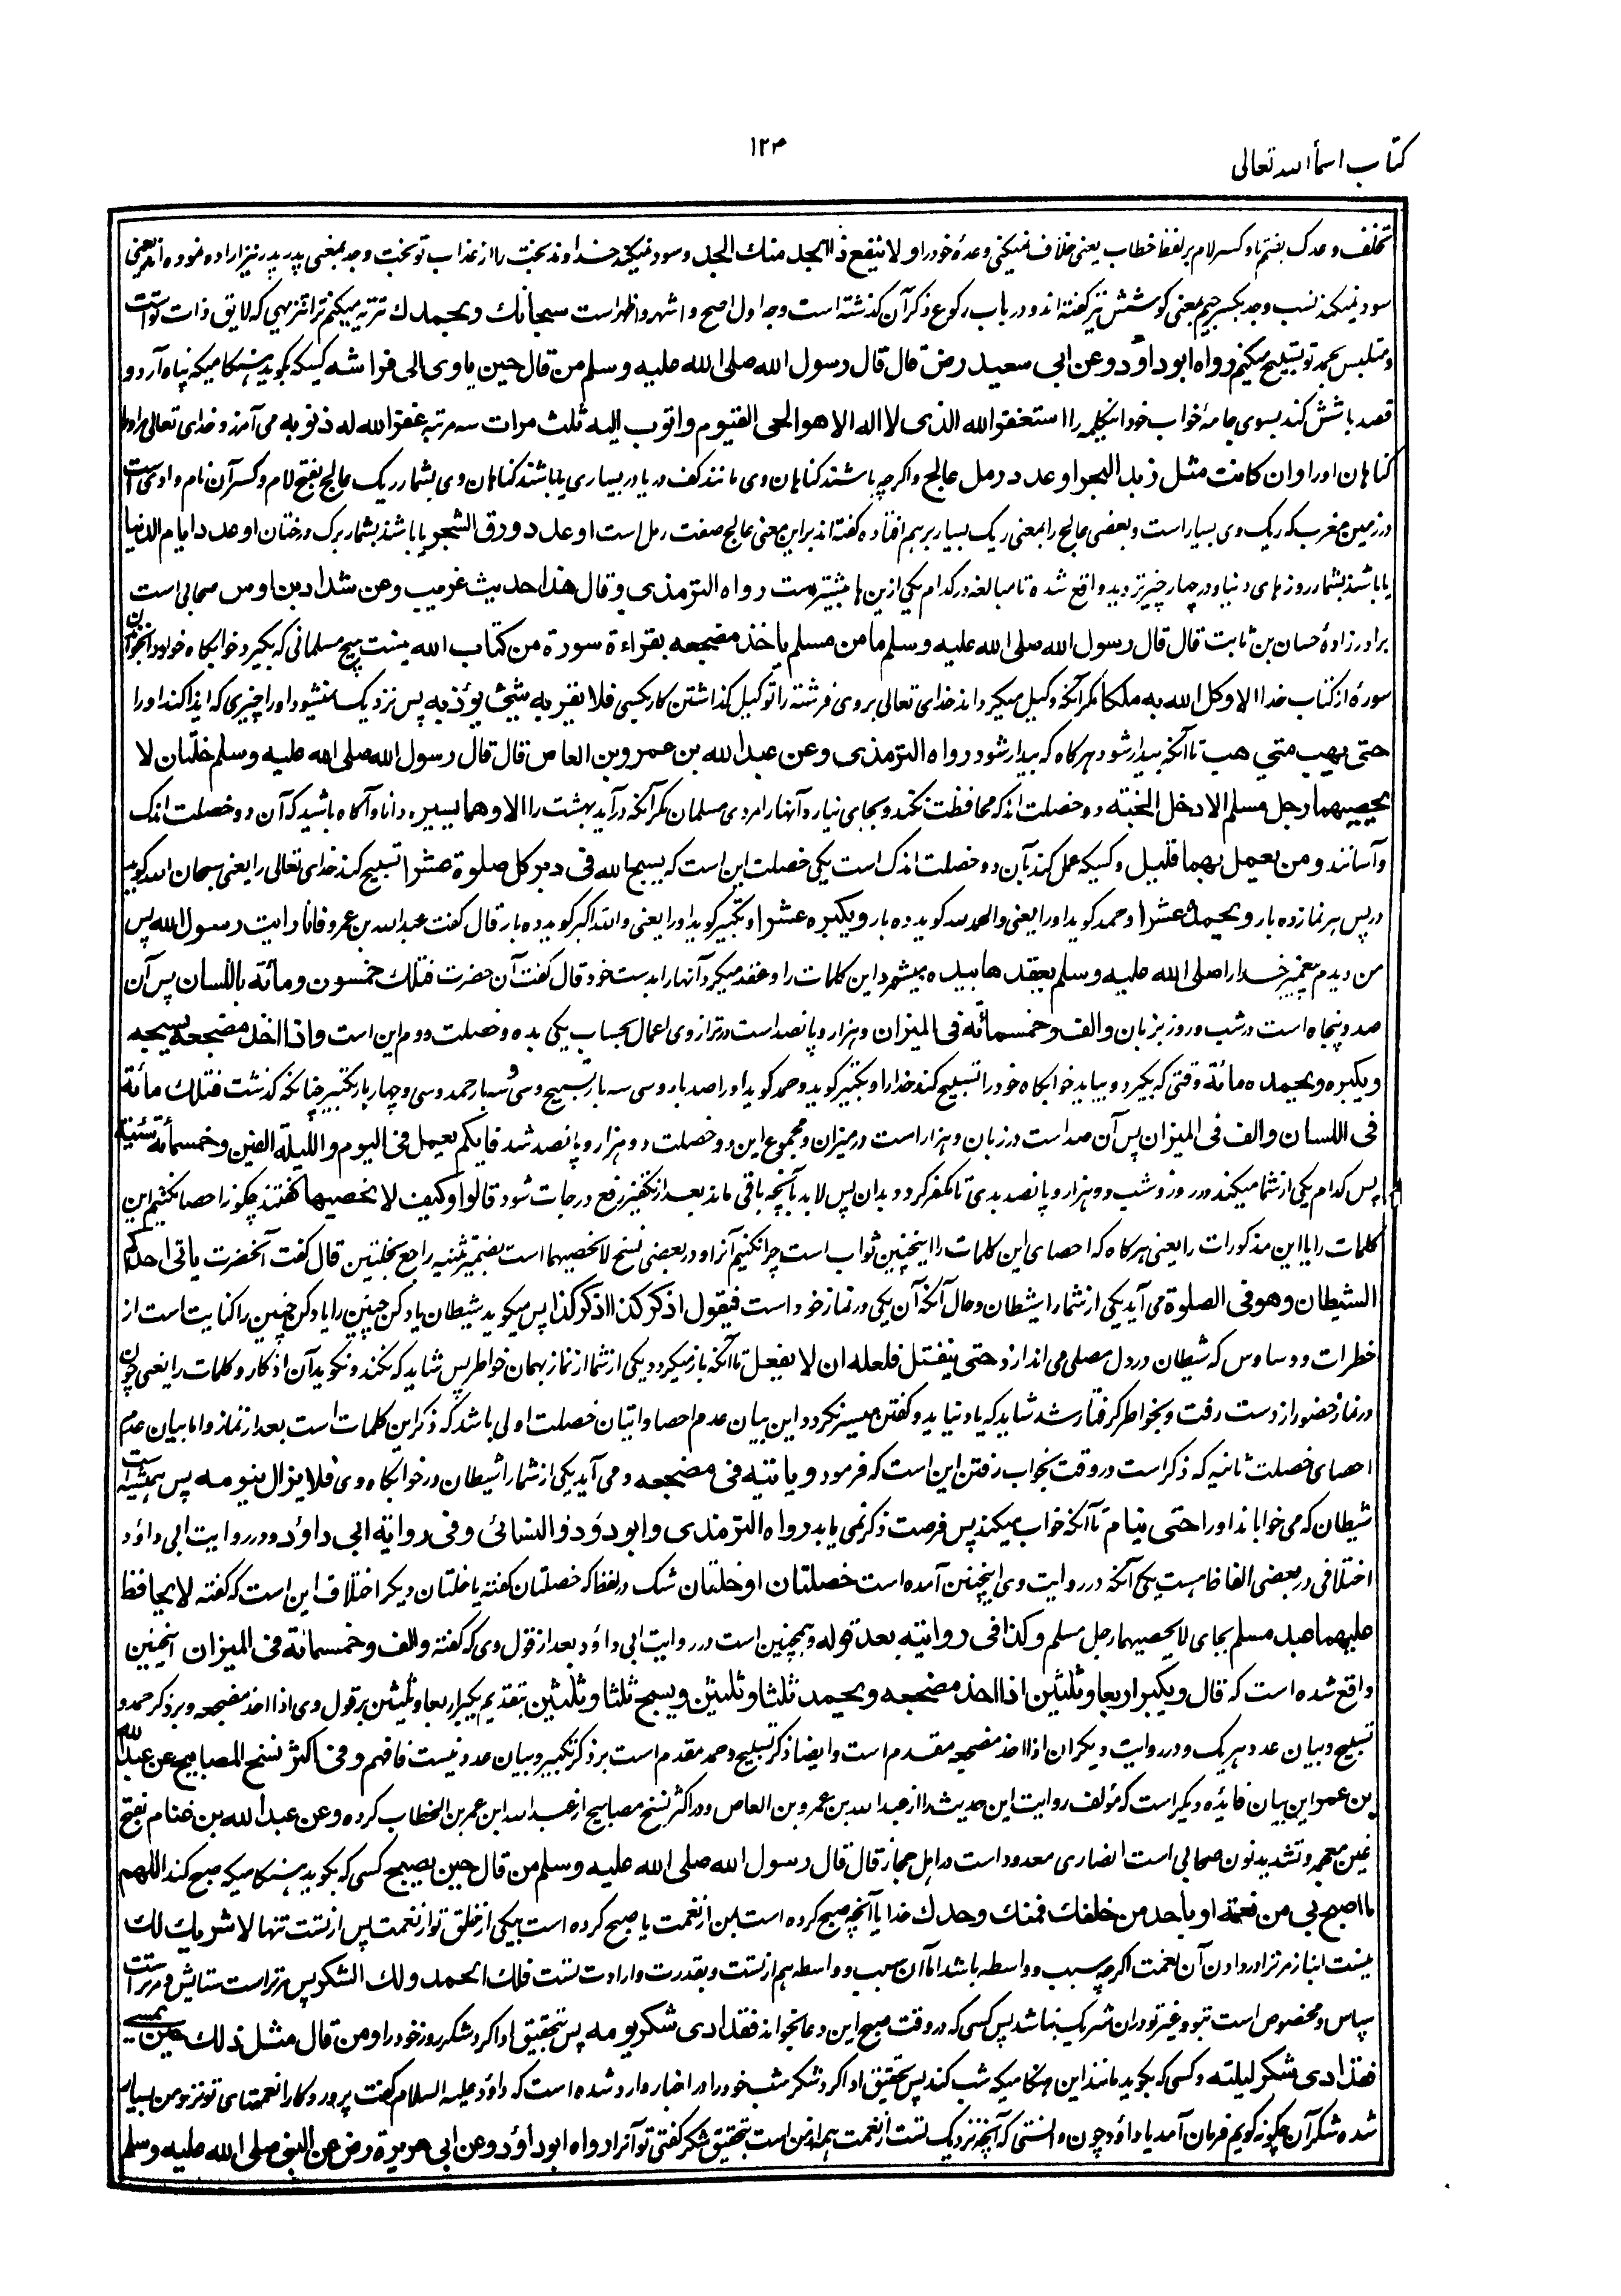 کتاب اسمأ الله تعالی
۱۲۳
تخلف وعدک بضم تا و کسر لام بر لفظ خطاب یعنی خلاف نمیکنی وعدهٔ خود را و لا ینفع ذا الجد منك الجد و سود نمیکند خداوند بخت را از عذاب تو بخت وجد بمعنی پدر پدر نیز اراده نموده اند یعنی
سود نمیکند نسب وجد بکسر جیم بمعنی کوشش نیز گفته اند و در باب رکوع ذکر آن گذشته است وجه اول اصح و اشهر و اظهر است سبحانك و بحمدك تنزیه میکنم ترا تنزیهی که لایق ذات تواست
و متلبس بحمد تو تسبیح میکنم رواه ابو داؤد وعن ابی سعید رض قال قال رسول الله صلی الله علیه وسلم من قال حین یاوی الی فراشه کسیکه بگوید هنگامیکه پناه آرد و
قصد باشش کند بسوی جامهٔ خواب خود اینکلمه را استغفر الله الذی لا اله الا هو الحی القیوم واتوب الیه ثلث مرات سه مرتبه غفر الله له ذنوبه می آمرزد خدای تعالی مر او را
گناهان او را وان کانت مثل زبد البحر او عدد رمل عالج و اگرچه باشند گناهان وی مانند کف دریا در بسیاری یا باشند گناهان وی بشمار ریگ عالج بفتح لام و کسر آن نام وادی است
در زمین مغرب که ریگ وی بسیار است و بعضی عالج را بمعنی ریگ بسیار بر هم افتاده گفته اند برین معنی عالج صفت رمل است او عدد ورق الشجر یا باشند بشمار برگ درختان او عدد ایام الدنیا
یا باشند بشمار روزهای دنیا و در چهار چیز تردید واقع شده تا مبالغه در کدام یکی ازین ها بیشترست رواه الترمذی وقال هذا حدیث غریب وعن شداد بن اوس صحابی است
برادرزادهٔ حسان بن ثابت قال قال رسول الله صلی الله علیه وسلم ما من مسلم یأخذ مضجعه بقراءة سورة من کتاب الله نیست هیچ مسلمانی که بگیرد خوابگاه خود را بخواندن
سورهٔ از کتاب خدا الا وکل الله به ملکا مگر آنکه وکیل میگرداند خدای تعالی بر وی فرشته را توکیل گذاشتن کار بکسی فلا یقربه شیء یؤذیه پس نزدیک نمیشود او را چیزی که ایذا کند او را
حتی یهب متی هب تا آنکه بیدار شود هر گاه که بیدار شود رواه الترمذی وعن عبدالله بن عمرو بن العاص قال قال رسول الله صلی الله علیه وسلم خلتان لا
یحصیهما رجل مسلم الا دخل الجنة دو خصلت اند که محافظت نکند و بجای نیارد آنها را مردی مسلمان مگر آنکه در آید بهشت را الا وهما یسیر دانا و آگاه باشید که آن دو خصلت اندک
و آسانند ومن یعمل بهما قلیل و کسیکه عمل کند بآن دو خصلت اندک است یکی خصلت این است که یسبح الله فی دبر کل صلوة عشرا تسبیح کند خدای تعالی را یعنی سبحان الله گوید
در پس هر نماز ده بار ویحمده عشرا و حمد گوید او را یعنی والحمد لله گوید ده بار ویکبره عشرا و تکبیر گوید او را یعنی والله اکبر گوید ده بار قال گفت عبدالله بن عمرو فانا رایت رسول الله پس
من دیدم پیغمبر خدا را صلی الله علیه وسلم یعقدها بیده میشمرد این کلمات را و عقد میکرد آنها را بدست خود قال گفت آن حضرت فتلك خمسون ومائة باللسان پس آن
صد و پنجاه است در شب و روز بزبان والف وخمسمائة فی المیزان و هزار و پانصد است در ترازوی اعمال بحساب یکی بده و خصلت دوم این است واذا اخذ مضجعه یسبحه
ویکبره ویحمده مائة وقتی که بگیرد و بیاید خوابگاه خود را تسبیح کند خدا را و تکبیر گوید و حمد گوید او را صد بار و سی سه بار تسبیح و سی و سه بار حمد و سی و چهار بار تکبیر چنانکه گذشت فتلك مائة
فی اللسان والف فی المیزان پس آن صد است در زبان و هزار است در میزان و مجموع این دو خصلت دو هزار و پانصد شد فایکم یعمل فی الیوم واللیلة الفین وخمسمائة سیئة
پس کدام یکی از شما میکند در روز و شب دو هزار و پانصد بدی تا مکفر گردد بدان پس لابد بآنچه باقی ماند بعد از تکفیر رفع درجات شود قالوا وکیف لا نحصیها گفتند چگونه احصا نکنیم این
کلمات را یا این مذکورات را یعنی هرگاه که احصای این کلمات را اینچنین ثواب است چرا نکنیم آنرا و در بعضی نسخ لا نحصیهما است بضمیر تثنیه راجع بخلتین قال گفت آنحضرت یاتی احدکم
الشیطان وهو فی الصلوة می آید یکی از شما را شیطان و حال آنکه آن یکی در نماز خود است فیقول اذکر کذا اذکر کذا پس میگوید شیطان یاد کن چنین را یاد کن چنین را کنایت است از
خطرات و وساوس که شیطان در دل مصلی می اندازد حتی ینفتل فلعله ان لا یفعل تا آنکه باز میگردد یکی از شما از نماز بهمان خواطر پس شاید که نکند و نگوید آن اذکار و کلمات را یعنی چون
در نماز حضور از دست رفت و بخواطر گرفتار شد شاید که یاد نیاید و گفتن میسر نگردد این بیان عدم احصا و اتیان خصلت اولی باشد که ذکر این کلمات است بعد از نماز و اما بیان عدم
احصای خصلت ثانیه که ذکر است در وقت بخواب رفتن این است که فرمود ویاتیه فی مضجعه و می آید یکی از شما را شیطان در خوابگاه وی فلا یزال ینومه پس همیشه است
شیطان که می خواباند او را حتی ینام تا آنکه خواب میکند پس فرصت ذکر نمی یابد رواه الترمذی وابو دؤد والنسائی وفی روایة ابی داؤد و در روایت ابی داؤد
اختلافی در بعضی الفاظ هست یکی آنکه در روایت وی اینچنین آمده است خصلتان او خلتان شک در لفظ که خصلتان گفته یا خلتان و دیگر اختلاف این است که گفته لا یحافظ
علیهما عبد مسلم بجای لا یحصیهما رجل مسلم وکذا فی روایته بعد قوله و همچنین است در روایت ابی داؤد بعد از قول وی که گفته والف وخمسمائة فی المیزان آنچنین
واقع شده است که قال ویکبر اربعا وثلثین اذا اخذ مضجعه ویحمد ثلثا وثلثین ویسبح ثلثا وثلثین بتقدیم یکبر اربعا و ثلثین بر قول وی اذا اخذ مضجعه و بر ذکر حمد و
تسبیح و بیان عدد هر یک و در روایت دیگران اذا اخذ مضجعه مقدم است و ایضا ذکر تسبیح و حمد مقدم است بر ذکر تکبیر و بیان عدد نیست فافهم وفی اکثر نسخ المصابیح عن عبد الله
بن عمر این بیان فائدهٔ دیگر است که مؤلف روایت این حدیث را از عبدالله بن عمرو بن العاص و در اکثر نسخ مصابیح از عبدالله ابن عمر بن الخطاب کرده وعن عبدالله بن غنام بفتح
غین معجمه و تشدید نون صحابی است انصاری معدود است در اهل حجاز قال قال رسول الله صلی الله علیه وسلم من قال حین یصبح کسی که بگوید هنگامیکه صبح کند اللهم
ما اصبح بی من نعمة او باحد من خلقك فمنك وحدك خدایا آنچه صبح کرده است بمن از نعمت یا صبح کرده است بیکی از خلق تو از نعمت پس از تست تنها لا شریك لك
نیست انباز مر ترا در دادن آن نعمت اگرچه سبب و واسطه باشد اما آن سبب و واسطه هم از تست و بقدرت و ارادت تست فلك الحمد ولك الشکر پس مر تراست ستایش و مر تراست
سپاس و مخصوص است بتو و غیر تو در ان شریک نباشد پس کسی که در وقت صبح این دعا بخواند فقد ادی شکر یومه پس بتحقیق ادا کرد شکر روز خود را ومن قال مثل ذلك حین یمسی
فقد ادی شکر لیلته و کسی که بگوید مانند این هنگامیکه شب کند پس بتحقیق ادا کرد شکر شب خود را در اخبار وارد شده است که داؤد علیه السلام گفت پروردگارا نعمتهای تو نزد من بسیار
شده شکر آن چگونه گویم فرمان آمد یا داؤد چون دانستی که آنچه نزدیک تست از نعمت همه از من است بتحقیق شکر گفتی تو آنرا رواه ابو داؤد وعن ابی هریرة رض عن النبی صلی الله علیه وسلم